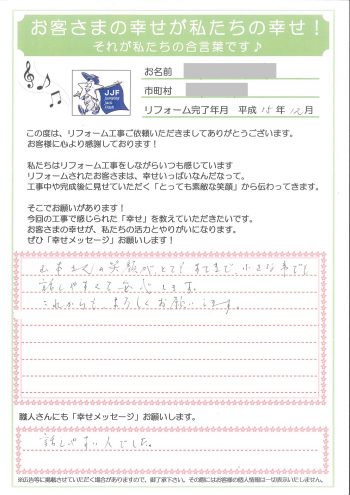 お客さまの幸せが私たちの幸せ！
それが私たちの合言葉です♪
JJF
お名前
市町村
リフォーム完了年月 平成 15 年 12 月
この度は、リフォーム工事ご依頼いただきましてありがとうございます。
お客様に心より感謝しております！
私たちはリフォーム工事をしながらいつも感じています
リフォームされたお客さまは、幸せいっぱいなんだなって。
工事中や完成後に見せていただく「とっても素敵な笑顔」から伝わってきます。
そこでお願いがあります！
今回の工事で感じられた「幸せ」を教えていただきたいです。
お客さまの幸せが、私たちの活力とやりがいになります。
ぜひ「幸せメッセージ」お願いします！
山本さんの笑顔が、とてもすてきで、小さな事でも
話しやすくて安心します。
これからも、よろしくお願いします。
職人さんにも「幸せメッセージ」お願いします。
話しやすい人でした。
※広告等に掲載させていただく場合がありますので、御了承下さい。その際にはお客様の個人情報は一切表示いたしません。